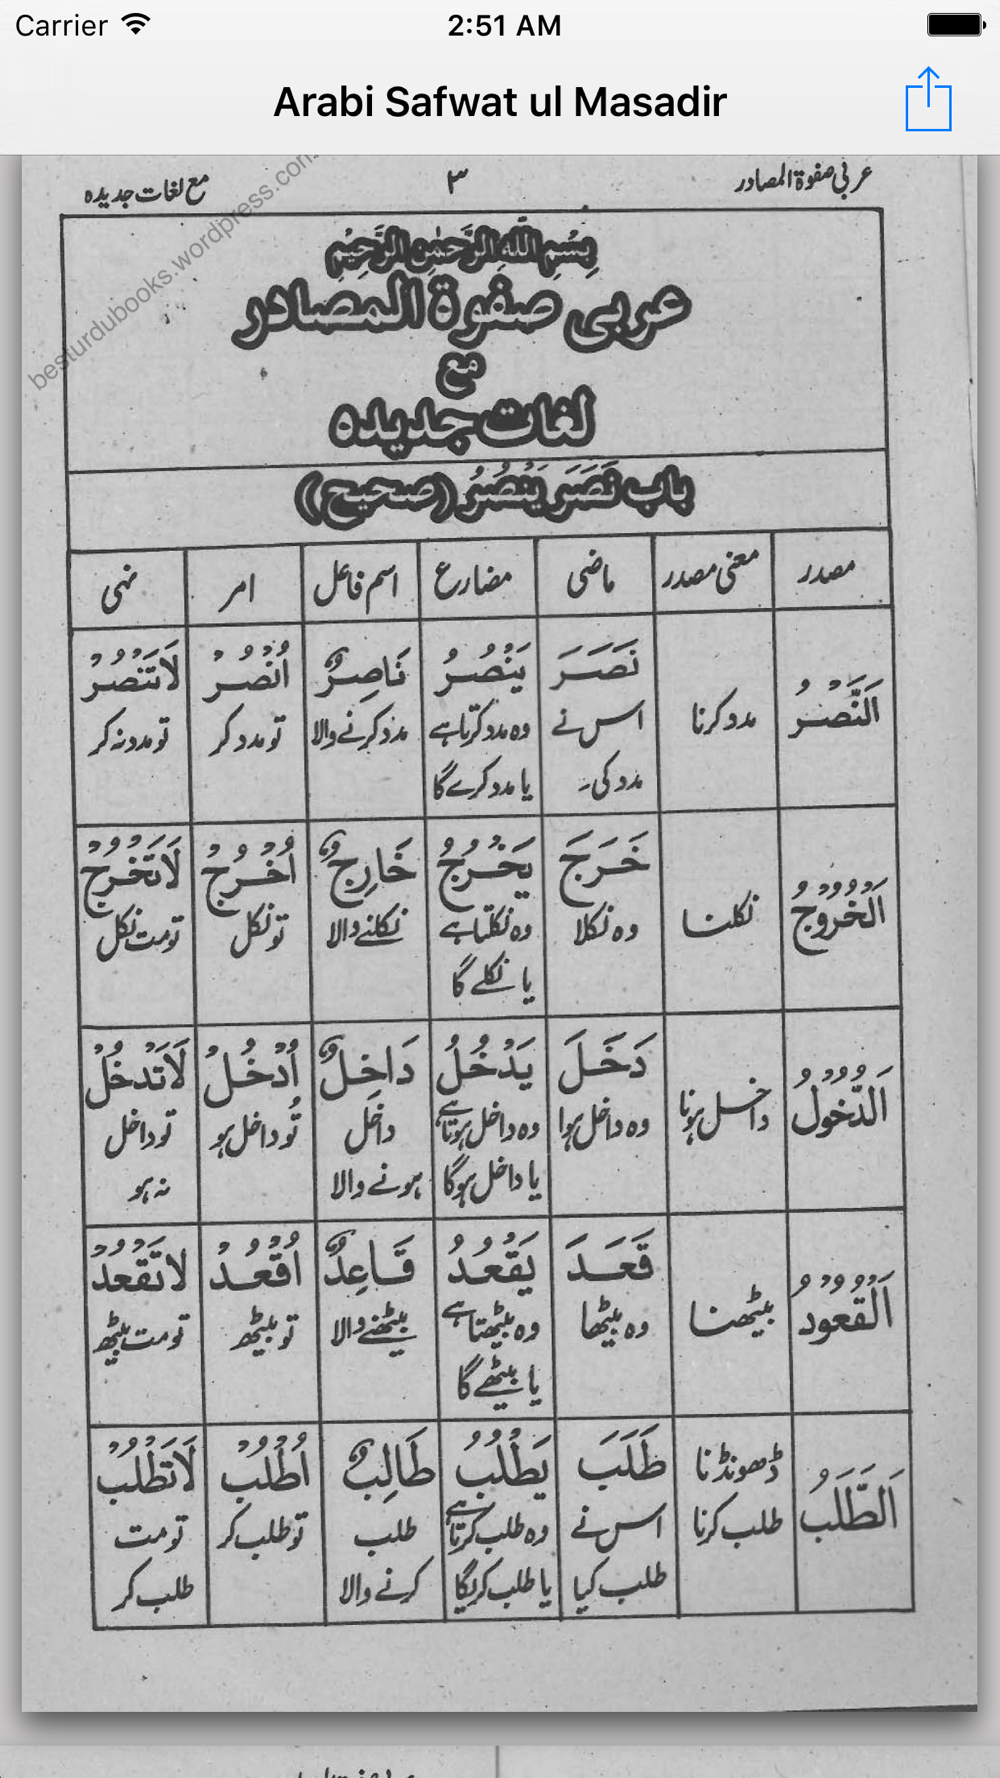 Carrier 2:51 AM
Arabi Safwat ul Masadir
عربی صفوۃ المصادر ۳ مع لغات جدیدہ
besturdubooks.wordpress.com
بِسْمِ اللّٰهِ الرَّحْمٰنِ الرَّحِيْمِ
عربی صفوة المصادر
مع
لغات جدیدہ
باب نَصَرَ يَنْصُرُ (صحیح)
مصدر معنی مصدر ماضی مضارع اسم فاعل امر نہی
اَلنَّصْرُ مدد کرنا نَصَرَ يَنْصُرُ نَاصِرٌ اُنْصُرْ لَاتَنْصُرْ
اس نے وہ مدد کرتا ہے مدد کرنے والا تو مدد کر تو مدد نہ کر
مدد کی۔ یا مدد کرے گا
اَلْخُرُوْجُ نکلنا خَرَجَ يَخْرُجُ خَارِجٌ اُخْرُجْ لَاتَخْرُجْ
وہ نکلا وہ نکلتا ہے نکلنے والا تو نکل تو مت نکل
یا نکلے گا
اَلدُّخُوْلُ داخل ہونا دَخَلَ يَدْخُلُ دَاخِلٌ اُدْخُلْ لَاتَدْخُلْ
وہ داخل ہوا وہ داخل ہوتا ہے داخل تُو داخل ہو تو داخل
یا داخل ہوگا ہونے والا نہ ہو
اَلْقُعُوْدُ بیٹھنا قَعَدَ يَقْعُدُ قَاعِدٌ اُقْعُدْ لاتَقْعُدْ
وہ بیٹھا وہ بیٹھتا ہے بیٹھنے والا تو بیٹھ تو مت بیٹھ
یا بیٹھے گا
اَلطَّلَبُ ڈھونڈنا طَلَبَ يَطْلُبُ طَالِبٌ اُطْلُبْ لَاتَطْلُبْ
طلب کرنا اس نے وہ طلب کرتا ہے طلب تو طلب کر تو مت
طلب کیا یا طلب کریگا کرنے والا طلب کر